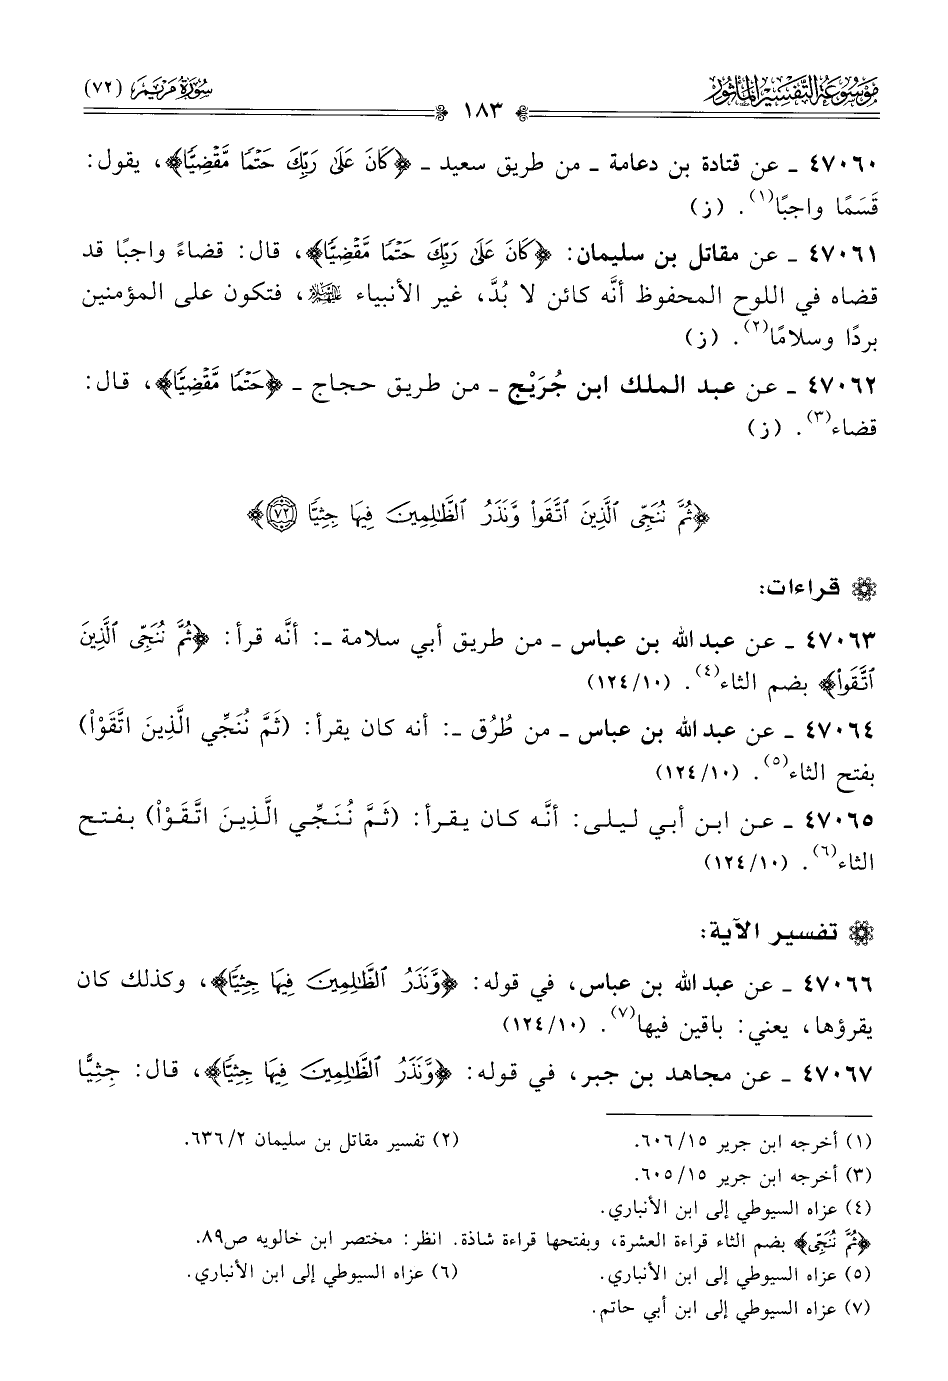 موسوعة التفسير المأثور
١٨٣
سورة مريم (٧٢)
٤٧٠٦٠ ـ عن قتادة بن دعامة ـ من طريق سعيد ـ ﴿كَانَ عَلَىٰ رَبِّكَ حَتْمًا مَّقْضِيًّا﴾، يقول:
قَسَمًا واجبًا(١). (ز)
٤٧٠٦١ ـ عن مقاتل بن سليمان: ﴿كَانَ عَلَىٰ رَبِّكَ حَتْمًا مَّقْضِيًّا﴾، قال: قضاءً واجبًا قد
قضاه في اللوح المحفوظ أنَّه كائن لا بُدَّ، غير الأنبياء ﷺ، فتكون على المؤمنين
بردًا وسلامًا(٢). (ز)
٤٧٠٦٢ ـ عن عبد الملك ابن جُرَيْج ـ من طريق حجاج ـ ﴿حَتْمًا مَّقْضِيًّا﴾، قال:
قضاء(٣). (ز)
﴿ثُمَّ نُنَجِّى ٱلَّذِينَ ٱتَّقَوا۟ وَّنَذَرُ ٱلظَّـٰلِمِينَ فِيهَا جِثِيًّا ٧٢﴾
قراءات:
٤٧٠٦٣ ـ عن عبد الله بن عباس ـ من طريق أبي سلامة ـ: أنَّه قرأ: ﴿ثُمَّ نُنَجِّى ٱلَّذِينَ
ٱتَّقَوا۟﴾ بضم الثاء(٤). (١٢٤/١٠)
٤٧٠٦٤ ـ عن عبد الله بن عباس ـ من طُرُق ـ: أنه كان يقرأ: (ثَمَّ نُنَجِّي الَّذِينَ اتَّقَوْا)
بفتح الثاء(٥). (١٢٤/١٠)
٤٧٠٦٥ ـ عن ابن أبي ليلى: أنَّه كان يقرأ: (ثَمَّ نُنَجِّي الَّذِينَ اتَّقَوْا) بفتح
الثاء(٦). (١٢٤/١٠)
تفسير الآية:
٤٧٠٦٦ ـ عن عبد الله بن عباس، في قوله: ﴿وَّنَذَرُ ٱلظَّـٰلِمِينَ فِيهَا جِثِيًّا﴾، وكذلك كان
يقرؤها، يعني: باقين فيها(٧). (١٢٤/١٠)
٤٧٠٦٧ ـ عن مجاهد بن جبر، في قوله: ﴿وَّنَذَرُ ٱلظَّـٰلِمِينَ فِيهَا جِثِيًّا﴾، قال: جِثِيًّا
(١) أخرجه ابن جرير ١٥/ ٦٠٦. (٢) تفسير مقاتل بن سليمان ٢/ ٦٣٦.
(٣) أخرجه ابن جرير ١٥/ ٦٠٥.
(٤) عزاه السيوطي إلى ابن الأنباري.
﴿ثُمَّ نُنَجِّى﴾ بضم الثاء قراءة العشرة، وبفتحها قراءة شاذة. انظر: مختصر ابن خالويه ص٨٩.
(٥) عزاه السيوطي إلى ابن الأنباري. (٦) عزاه السيوطي إلى ابن الأنباري.
(٧) عزاه السيوطي إلى ابن أبي حاتم.